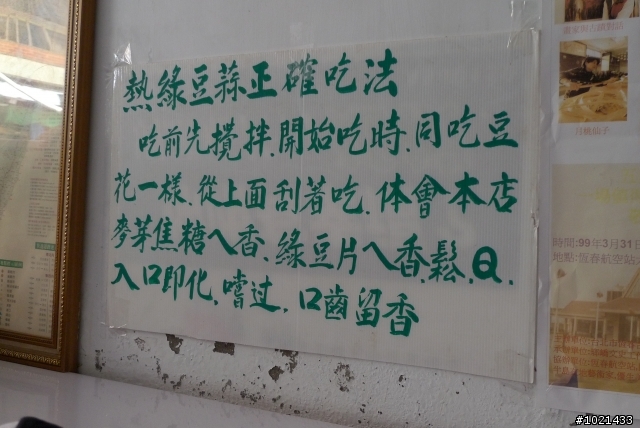 熱綠豆蒜正確吃法
吃前先攪拌.開始吃時.同吃豆
花一樣.從上面刮著吃.体會本店
麥芽焦糖ㄟ香.綠豆片ㄟ香.鬆.Q.
入口即化.嚐过.口齒留香
月桃仙子
時間:99年3月31日
地點:恆春航空站
#1021433